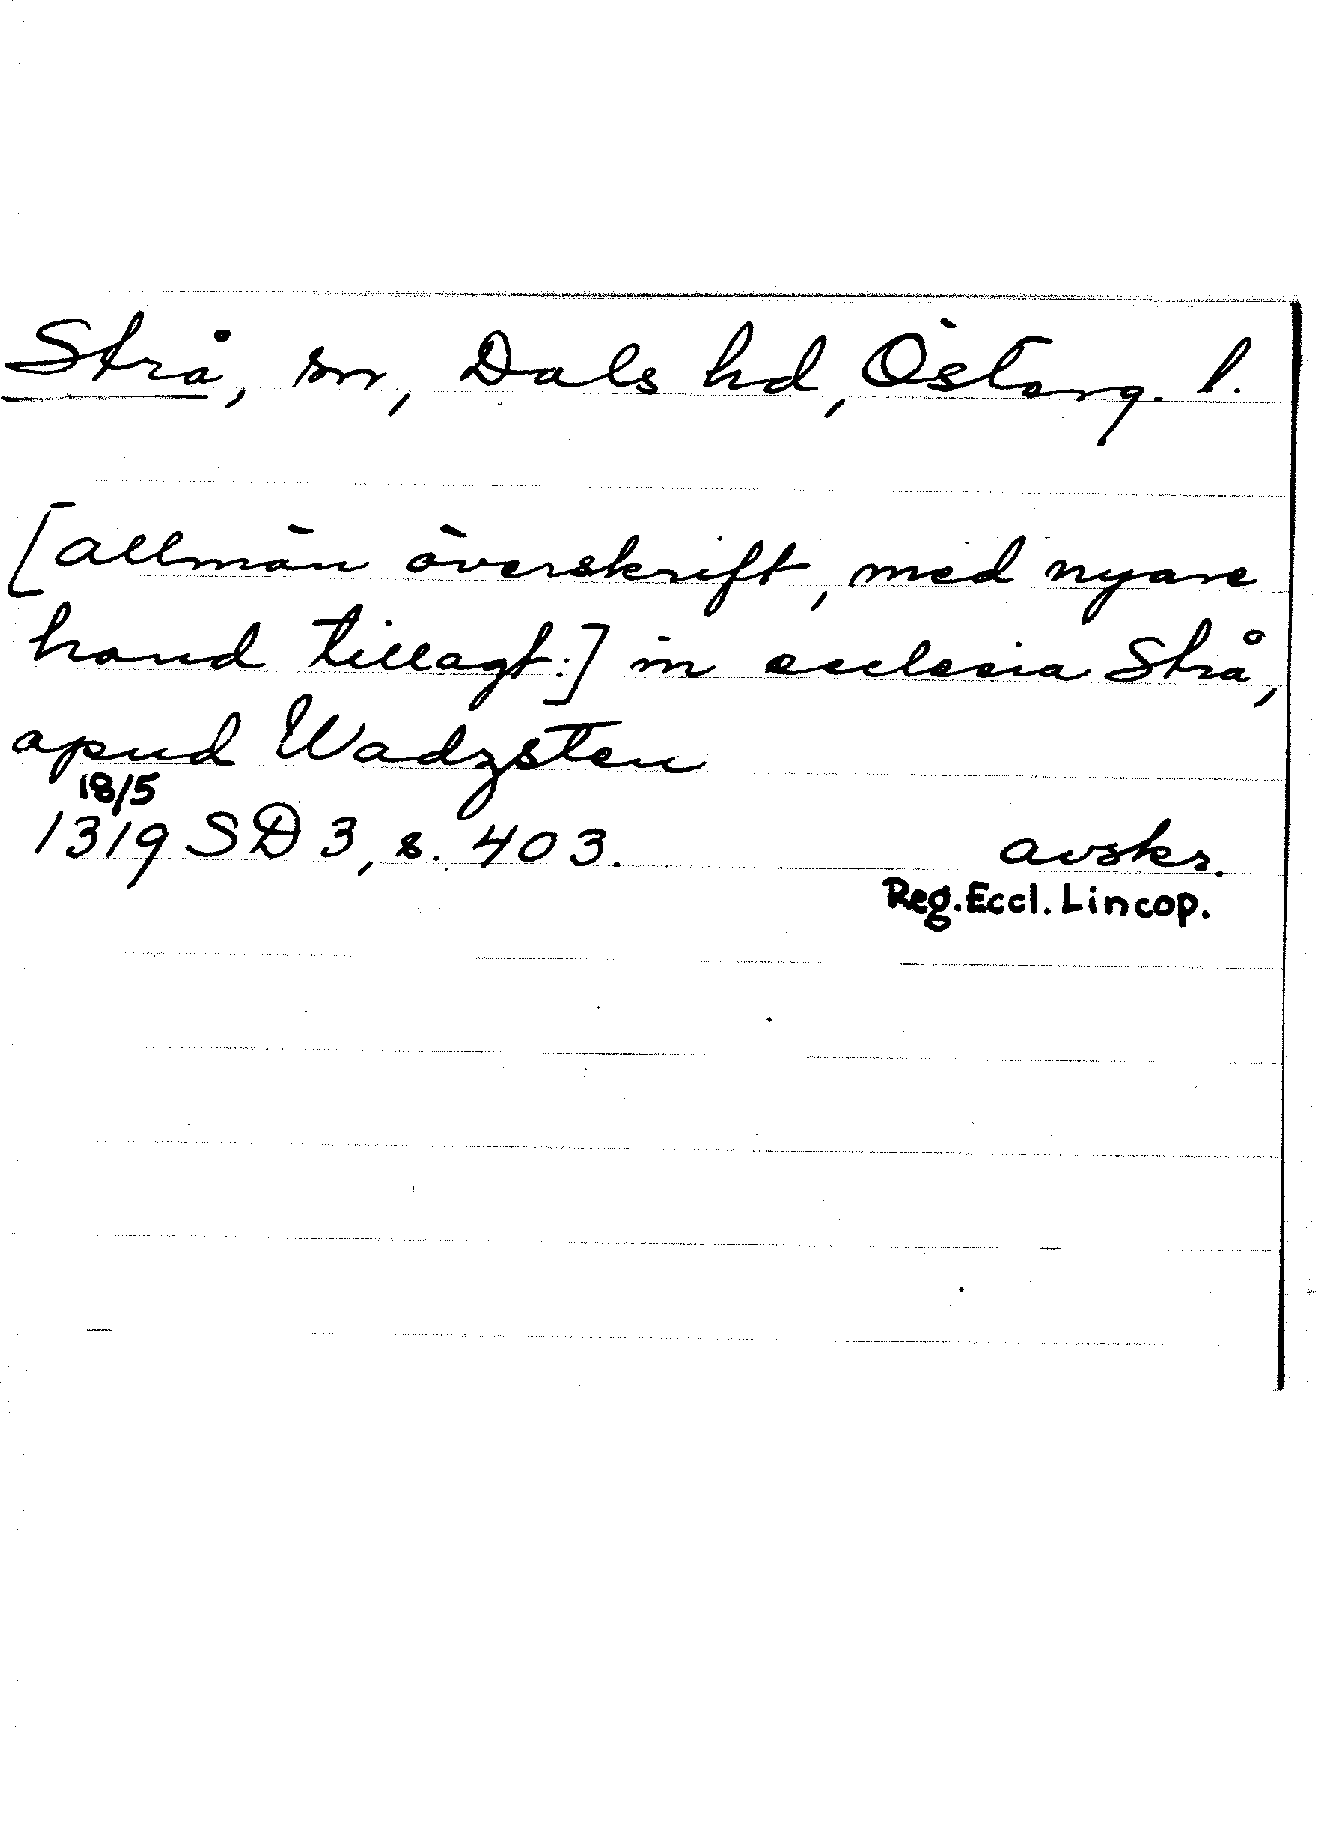 Strå, sn, Dals hd, Österg. l.
[allmän överskrift, med nyare
hand tillagt:] in ecclesia Strå,
apud Wadzsten
18/5
1319 SD 3, s. 403. avskr.
Reg. Eccl. Lincop.